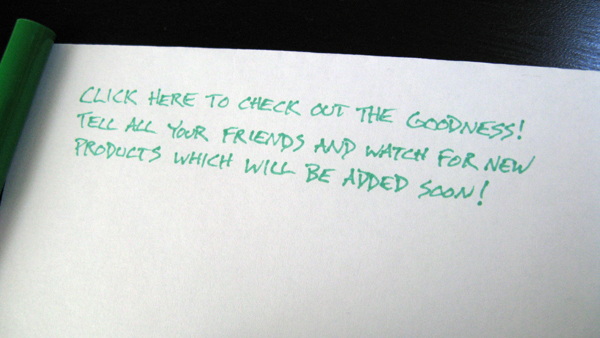 CLICK HERE TO CHECK OUT THE GOODNESS!
TELL ALL YOUR FRIENDS AND WATCH FOR NEW
PRODUCTS WHICH WILL BE ADDED SOON!